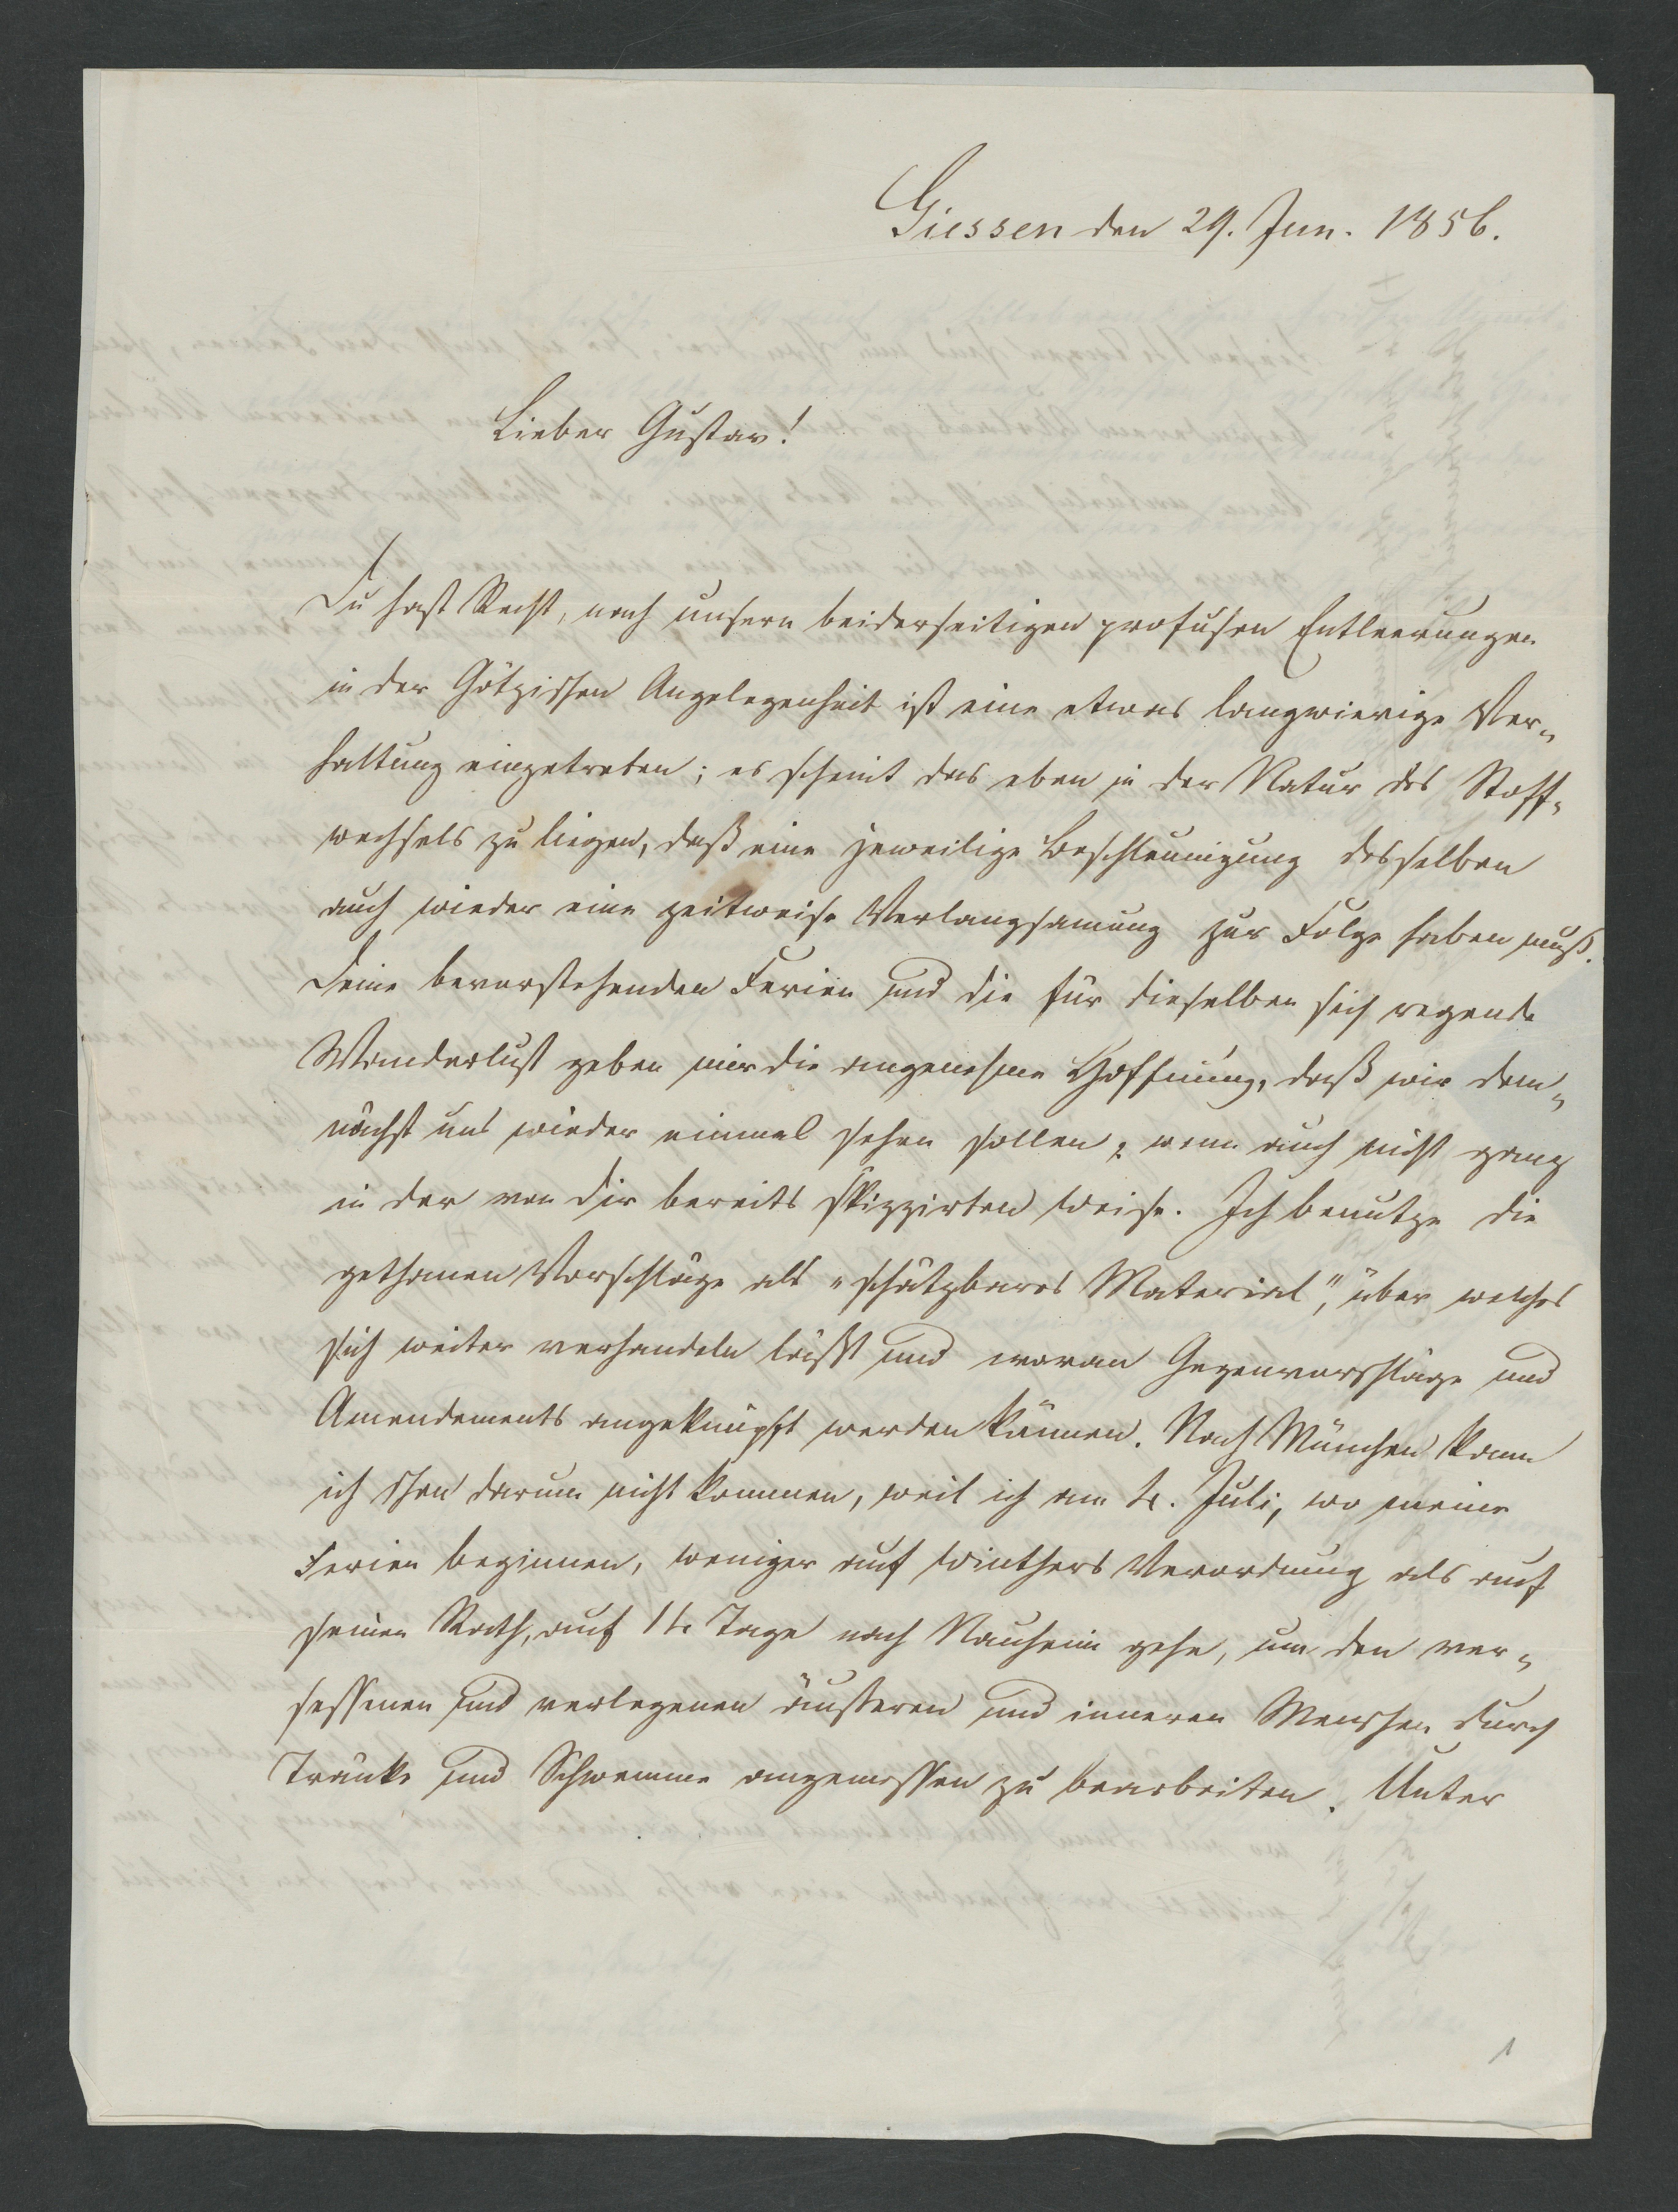 Giessen den 29. Jun. 1856.
Lieber Gustav!
Du hast Recht, nach unsern beiderseitigen profusen Entleerungen
in der Götzischen Angelegenheit ist eine etwas langwierige Ver-
haltung eingetreten; es scheint das eben in der Natur des Stoff-
wechsels zu liegen, daß eine jeweilige Beschleunigung desselben
auch wieder eine zeitweise Verlangsamung zur Folge haben muß.
Deine bevorstehenden Ferien und die für dieselben sich regende
Wanderlust geben mir die angenehme Hoffnung, daß wir dem-
nächst uns wieder einmal sehen sollen, wenn auch nicht ganz
in der von Dir bereits skizzirten Weise. Ich benutze die
gethanen Vorschläge als "schätzbares Material", über welches
sich weiter verhandeln läßt und woran Gegenvorschläge und
Amendements angeknüpft werden können. Nach München kann
ich schon darum nicht kommen, weil ich am 4. Juli, wo meine
Ferien beginnen, weniger auf Winthers Verordnung als auf
seinen Rath, auf 14 Tage nach Nauheim gehe, um den ver-
sessenen und verlegenen äusseren und inneren Menschen durch
Tränke und Schwemme angemessen zu bearbeiten. Unter
1